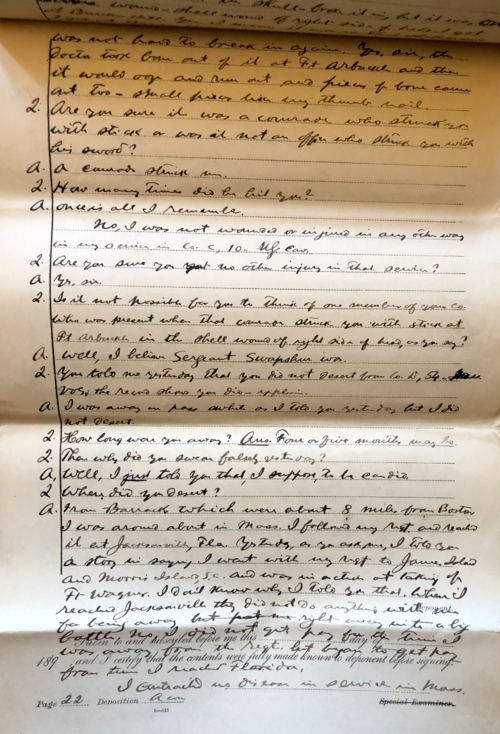 was not hard to break in again. Yes, sir, the
doctor took bone out of it at Ft Arbuckle and then
it would ooze and run out and pieces of bone came
out too - small pieces like my thumb nail.
Q. Are you sure it was a comrade who struck you
with stick or was it not an officer who struck you with
his sword?
A. A comrade struck me.
Q. How many times did he hit you?
A. once is all I remember.
No, I was not wounded or injured in any other way
in my service in Co. C, 10. U.S. Cav.
Q. Are you sure you got no other injury in that service?
A. Yes, sir.
Q. Is it not possible for you to think of one member of your Co.
who was present when that comrade struck you with stick at
Ft Arbuckle in the shell wound of right side of head, as you say?
A. Well, I believe Sergeant Swapshur was.
Q. You told me yesterday that you did not desert from Co. D,
Vols, the record show you did - explain.
A. I was away on pass awhile as I told you yesterday but I did
not desert.
Q. How long were you away? Ans. Four or five months may be.
Q. Then why did you swear falsely yesterday?
A. Well, I just told you that, I suppose, to be candid.
Q. Where did you desert?
A. From Barracks which were about 8 miles from Boston
I was around about in Mass. I followed my regt and reached
it at Jacksonville, Fla. Yesterday, as you ask me, I told you
a story in saying I went with my regt to James Island
and Morris Island, S.C. and was in action at taking of
Ft Wagner. I don't know why I told you that. When I
reached Jacksonville they did not do anything with me
for being away but put me right away into a big
battle. No, I did not get pay for the time I
Sworn to and subscribed before me this day of
was away from the regt, but began to get pay
189 , and I certify that the contents were fully made known to deponent before signing.
from time I reached Florida.
I contracted no disease in service in Mass.
Page 22 Deposition A
Special Examiner.